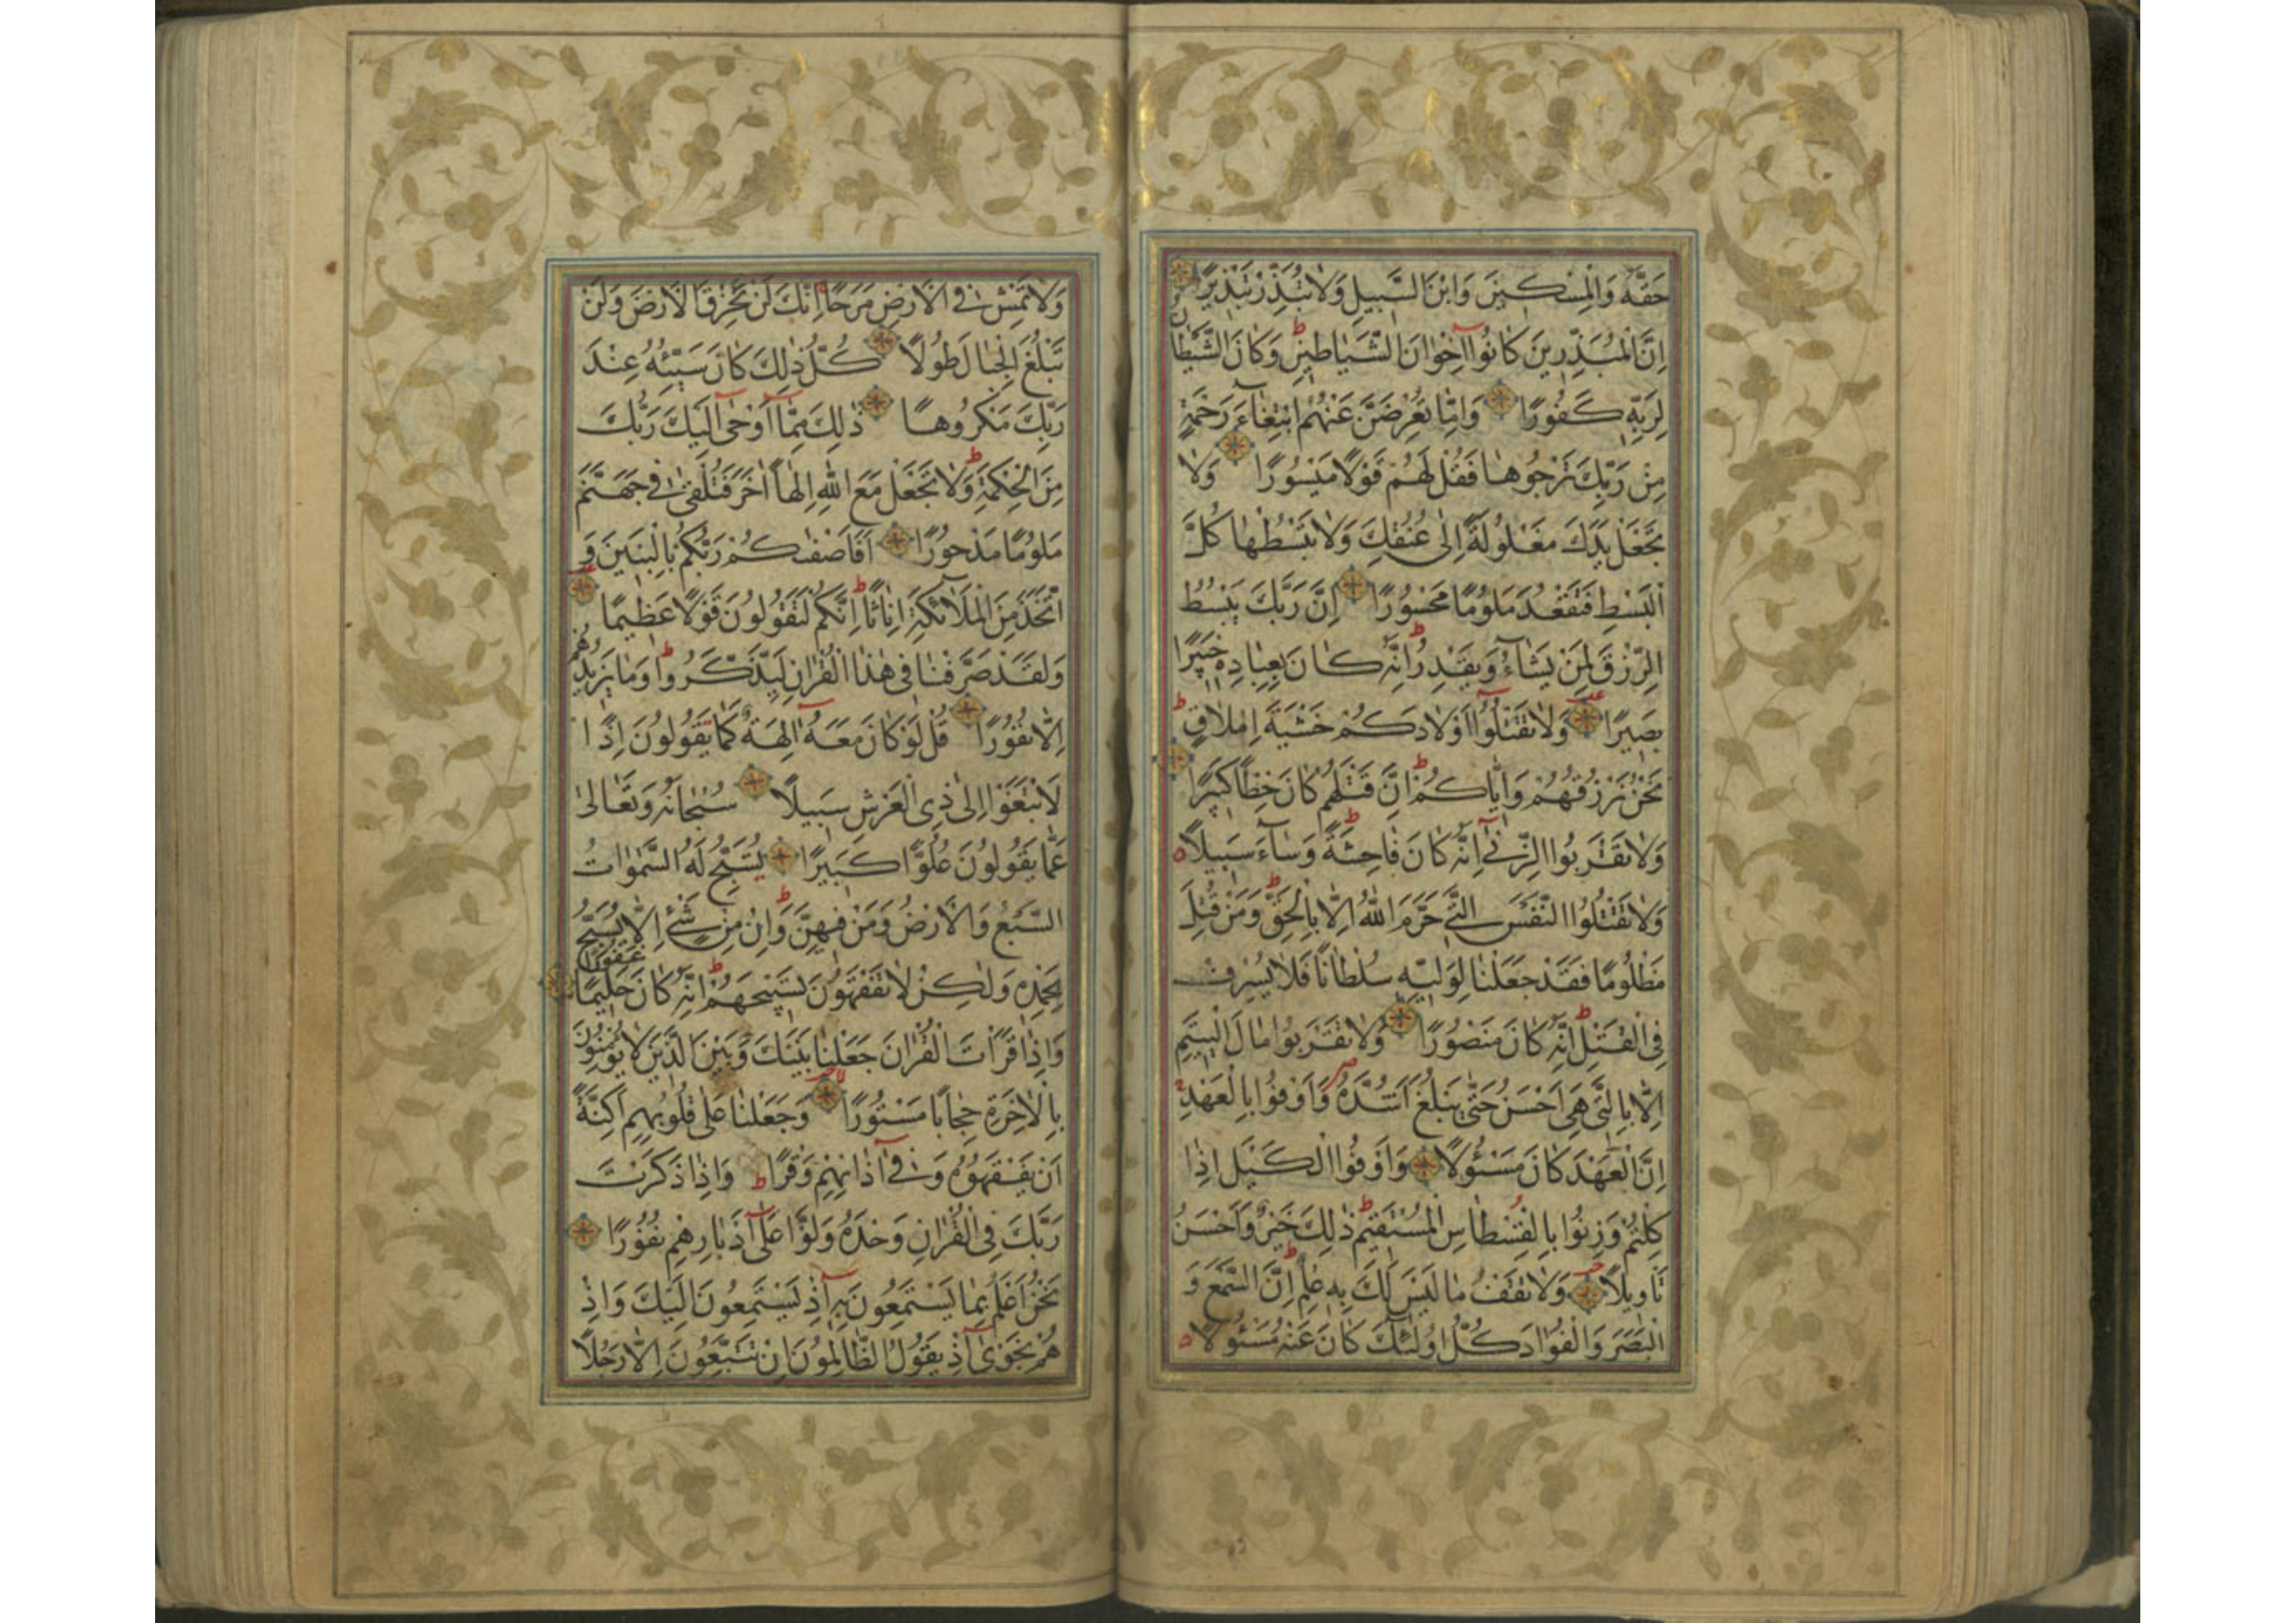 حَقَّهُ وَالْمِسْكِينَ وَابْنَ السَّبِيلِ وَلَا تُبَذِّرْ تَبْذِيرًا
اِنَّ الْمُبَذِّرِينَ كَانُوا اِخْوَانَ الشَّيَاطِينِ وَكَانَ الشَّيْطَانُ
لِرَبِّهِ كَفُورًا وَاِمَّا تُعْرِضَنَّ عَنْهُمُ ابْتِغَاءَ رَحْمَةٍ
مِنْ رَبِّكَ تَرْجُوهَا فَقُلْ لَهُمْ قَوْلًا مَيْسُورًا وَلَا
تَجْعَلْ يَدَكَ مَغْلُولَةً اِلَى عُنُقِكَ وَلَا تَبْسُطْهَا كُلَّ
الْبَسْطِ فَتَقْعُدَ مَلُومًا مَحْسُورًا اِنَّ رَبَّكَ يَبْسُطُ
الرِّزْقَ لِمَنْ يَشَاءُ وَيَقْدِرُ اِنَّهُ كَانَ بِعِبَادِهِ خَبِيرًا
بَصِيرًا وَلَا تَقْتُلُوا اَوْلَادَكُمْ خَشْيَةَ اِمْلَاقٍ
نَحْنُ نَرْزُقُهُمْ وَاِيَّاكُمْ اِنَّ قَتْلَهُمْ كَانَ خِطْأً كَبِيرًا
وَلَا تَقْرَبُوا الزِّنَى اِنَّهُ كَانَ فَاحِشَةً وَسَاءَ سَبِيلًا
وَلَا تَقْتُلُوا النَّفْسَ الَّتِي حَرَّمَ اللهُ اِلَّا بِالْحَقِّ وَمَنْ قُتِلَ
مَظْلُومًا فَقَدْ جَعَلْنَا لِوَلِيِّهِ سُلْطَانًا فَلَا يُسْرِفْ
فِي الْقَتْلِ اِنَّهُ كَانَ مَنْصُورًا وَلَا تَقْرَبُوا مَالَ الْيَتِيمِ
اِلَّا بِالَّتِي هِيَ اَحْسَنُ حَتَّى يَبْلُغَ اَشُدَّهُ وَاَوْفُوا بِالْعَهْدِ
اِنَّ الْعَهْدَ كَانَ مَسْئُولًا وَاَوْفُوا الْكَيْلَ اِذَا
كِلْتُمْ وَزِنُوا بِالْقِسْطَاسِ الْمُسْتَقِيمِ ذَلِكَ خَيْرٌ وَاَحْسَنُ
تَاْوِيلًا وَلَا تَقْفُ مَا لَيْسَ لَكَ بِهِ عِلْمٌ اِنَّ السَّمْعَ وَ
الْبَصَرَ وَالْفُؤَادَ كُلُّ اُولَئِكَ كَانَ عَنْهُ مَسْئُولًا
وَلَا تَمْشِ فِي الْاَرْضِ مَرَحًا اِنَّكَ لَنْ تَخْرِقَ الْاَرْضَ وَلَنْ
تَبْلُغَ الْجِبَالَ طُولًا كُلُّ ذَلِكَ كَانَ سَيِّئُهُ عِنْدَ
رَبِّكَ مَكْرُوهًا ذَلِكَ مِمَّا اَوْحَى اِلَيْكَ رَبُّكَ
مِنَ الْحِكْمَةِ وَلَا تَجْعَلْ مَعَ اللهِ اِلَهًا اٰخَرَ فَتُلْقَى فِي جَهَنَّمَ
مَلُومًا مَدْحُورًا اَفَاَصْفَاكُمْ رَبُّكُمْ بِالْبَنِينَ وَ
اتَّخَذَ مِنَ الْمَلَائِكَةِ اِنَاثًا اِنَّكُمْ لَتَقُولُونَ قَوْلًا عَظِيمًا
وَلَقَدْ صَرَّفْنَا فِي هَذَا الْقُرْاٰنِ لِيَذَّكَّرُوا وَمَا يَزِيدُهُمْ
اِلَّا نُفُورًا قُلْ لَوْ كَانَ مَعَهُ اٰلِهَةٌ كَمَا يَقُولُونَ اِذًا
لَابْتَغَوْا اِلَى ذِي الْعَرْشِ سَبِيلًا سُبْحَانَهُ وَتَعَالَى
عَمَّا يَقُولُونَ عُلُوًّا كَبِيرًا تُسَبِّحُ لَهُ السَّمٰوَاتُ
السَّبْعُ وَالْاَرْضُ وَمَنْ فِيهِنَّ وَاِنْ مِنْ شَيْءٍ اِلَّا يُسَبِّحُ
بِحَمْدِهِ وَلَكِنْ لَا تَفْقَهُونَ تَسْبِيحَهُمْ اِنَّهُ كَانَ حَلِيمًا غَفُورًا
وَاِذَا قَرَاْتَ الْقُرْاٰنَ جَعَلْنَا بَيْنَكَ وَبَيْنَ الَّذِينَ لَا يُؤْمِنُونَ
بِالْاٰخِرَةِ حِجَابًا مَسْتُورًا وَجَعَلْنَا عَلَى قُلُوبِهِمْ اَكِنَّةً
اَنْ يَفْقَهُوهُ وَفِي اٰذَانِهِمْ وَقْرًا وَاِذَا ذَكَرْتَ
رَبَّكَ فِي الْقُرْاٰنِ وَحْدَهُ وَلَّوْا عَلَى اَدْبَارِهِمْ نُفُورًا
نَحْنُ اَعْلَمُ بِمَا يَسْتَمِعُونَ بِهِ اِذْ يَسْتَمِعُونَ اِلَيْكَ وَاِذْ
هُمْ نَجْوَى اِذْ يَقُولُ الظَّالِمُونَ اِنْ تَتَّبِعُونَ اِلَّا رَجُلًا